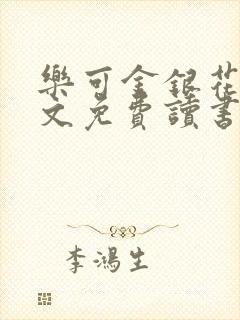 樂可金銀花
文免費讀書
李鴻生